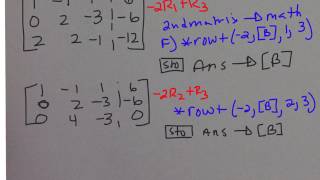 -2R₁+R₃
0 2 -3 | -6
2 2 -1 | -12
2nd matrix → math
F) *row+(-2,[B],1,3)
sto Ans → [B]
1 -1 1 | 6
0 2 -3 | -6
0 4 -3 | 0
-2R₂+R₃
*row+(-2,[B],2,3)
sto Ans → [B]